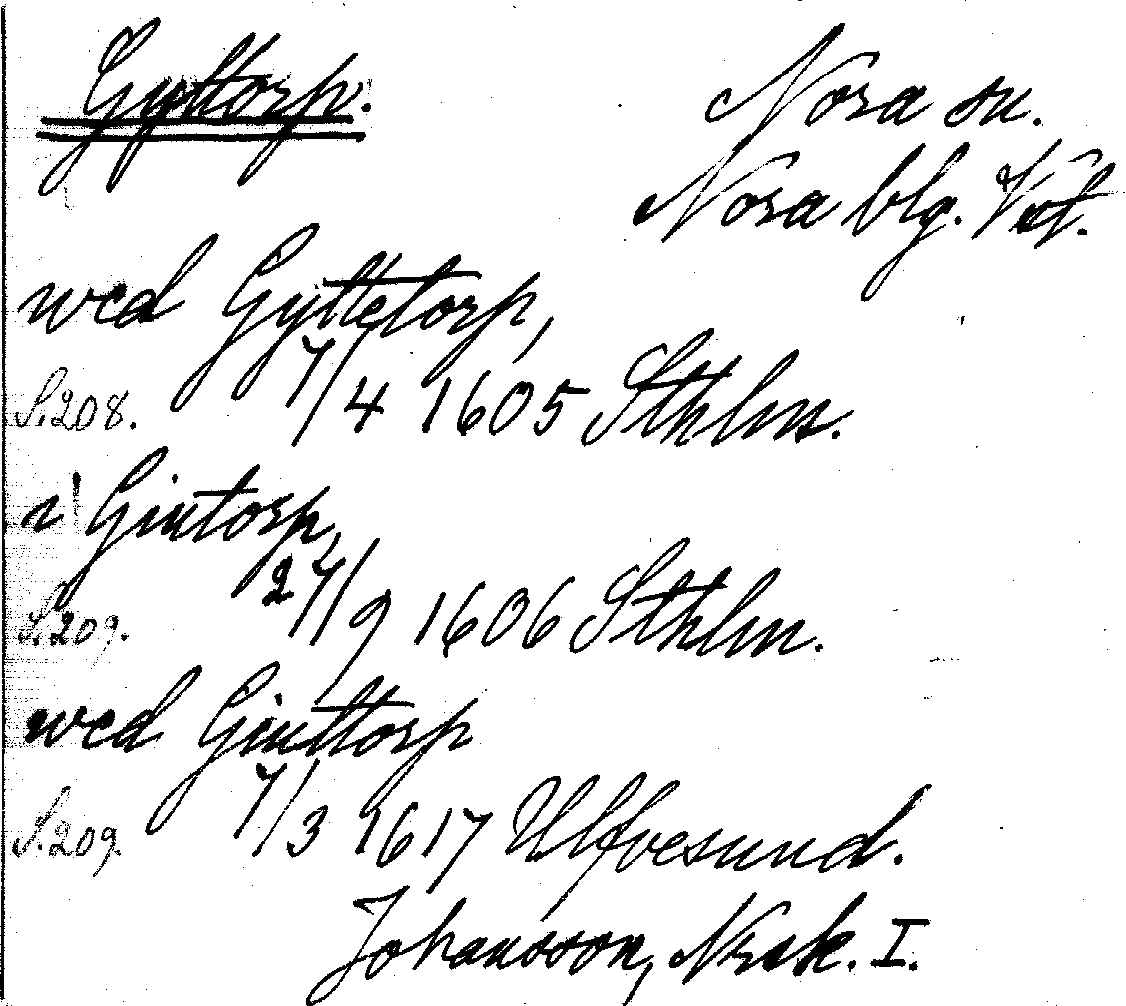 Gyttorp.
Nora sn.
Nora blg. Vstm.
wed Gyttetorp,
S.208. 7/4 1605 Sthlm.
i Giutorp,
S.209. 27/9 1606 Sthlm.
wed Giuttorp
S.209. 7/3 1617 Ulfvesund.
Johansson, Nrsk. I.